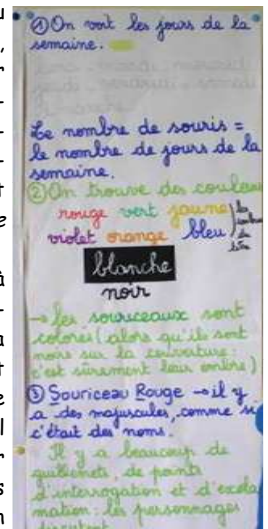 ① On voit les jours de la
semaine.
Le nombre de souris =
le nombre de jours de la
semaine.
② On trouve des couleu
rouge vert jaune
violet orange bleu
blanche
noir
→ les souriceaux sont
colorés (alors qu'ils sont
noirs sur la couverture :
c'est sûrement leur ombre)
③ Souriceau Rouge → il y
a des majuscules, comme si
c'était des noms.
Il y a beaucoup de
guillemets, de points
d'interrogation et d'excla
mation : les personnages
discutent